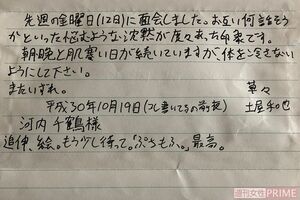 先週の金曜日(12日)に面会しました。お互い何話そう
かといった悩むような沈黙が度々あった印象です。
朝晩と肌寒い日が続いていますが、体を冷さない
ようにして下さい。
またいずれ。 草々
平成30年10月19日(コレ書いてるの前夜) 土屋和也
河内千鶴様
追伸、絵。もう少し待って。「ぷちもふ」。最高。
週刊女性PRIME